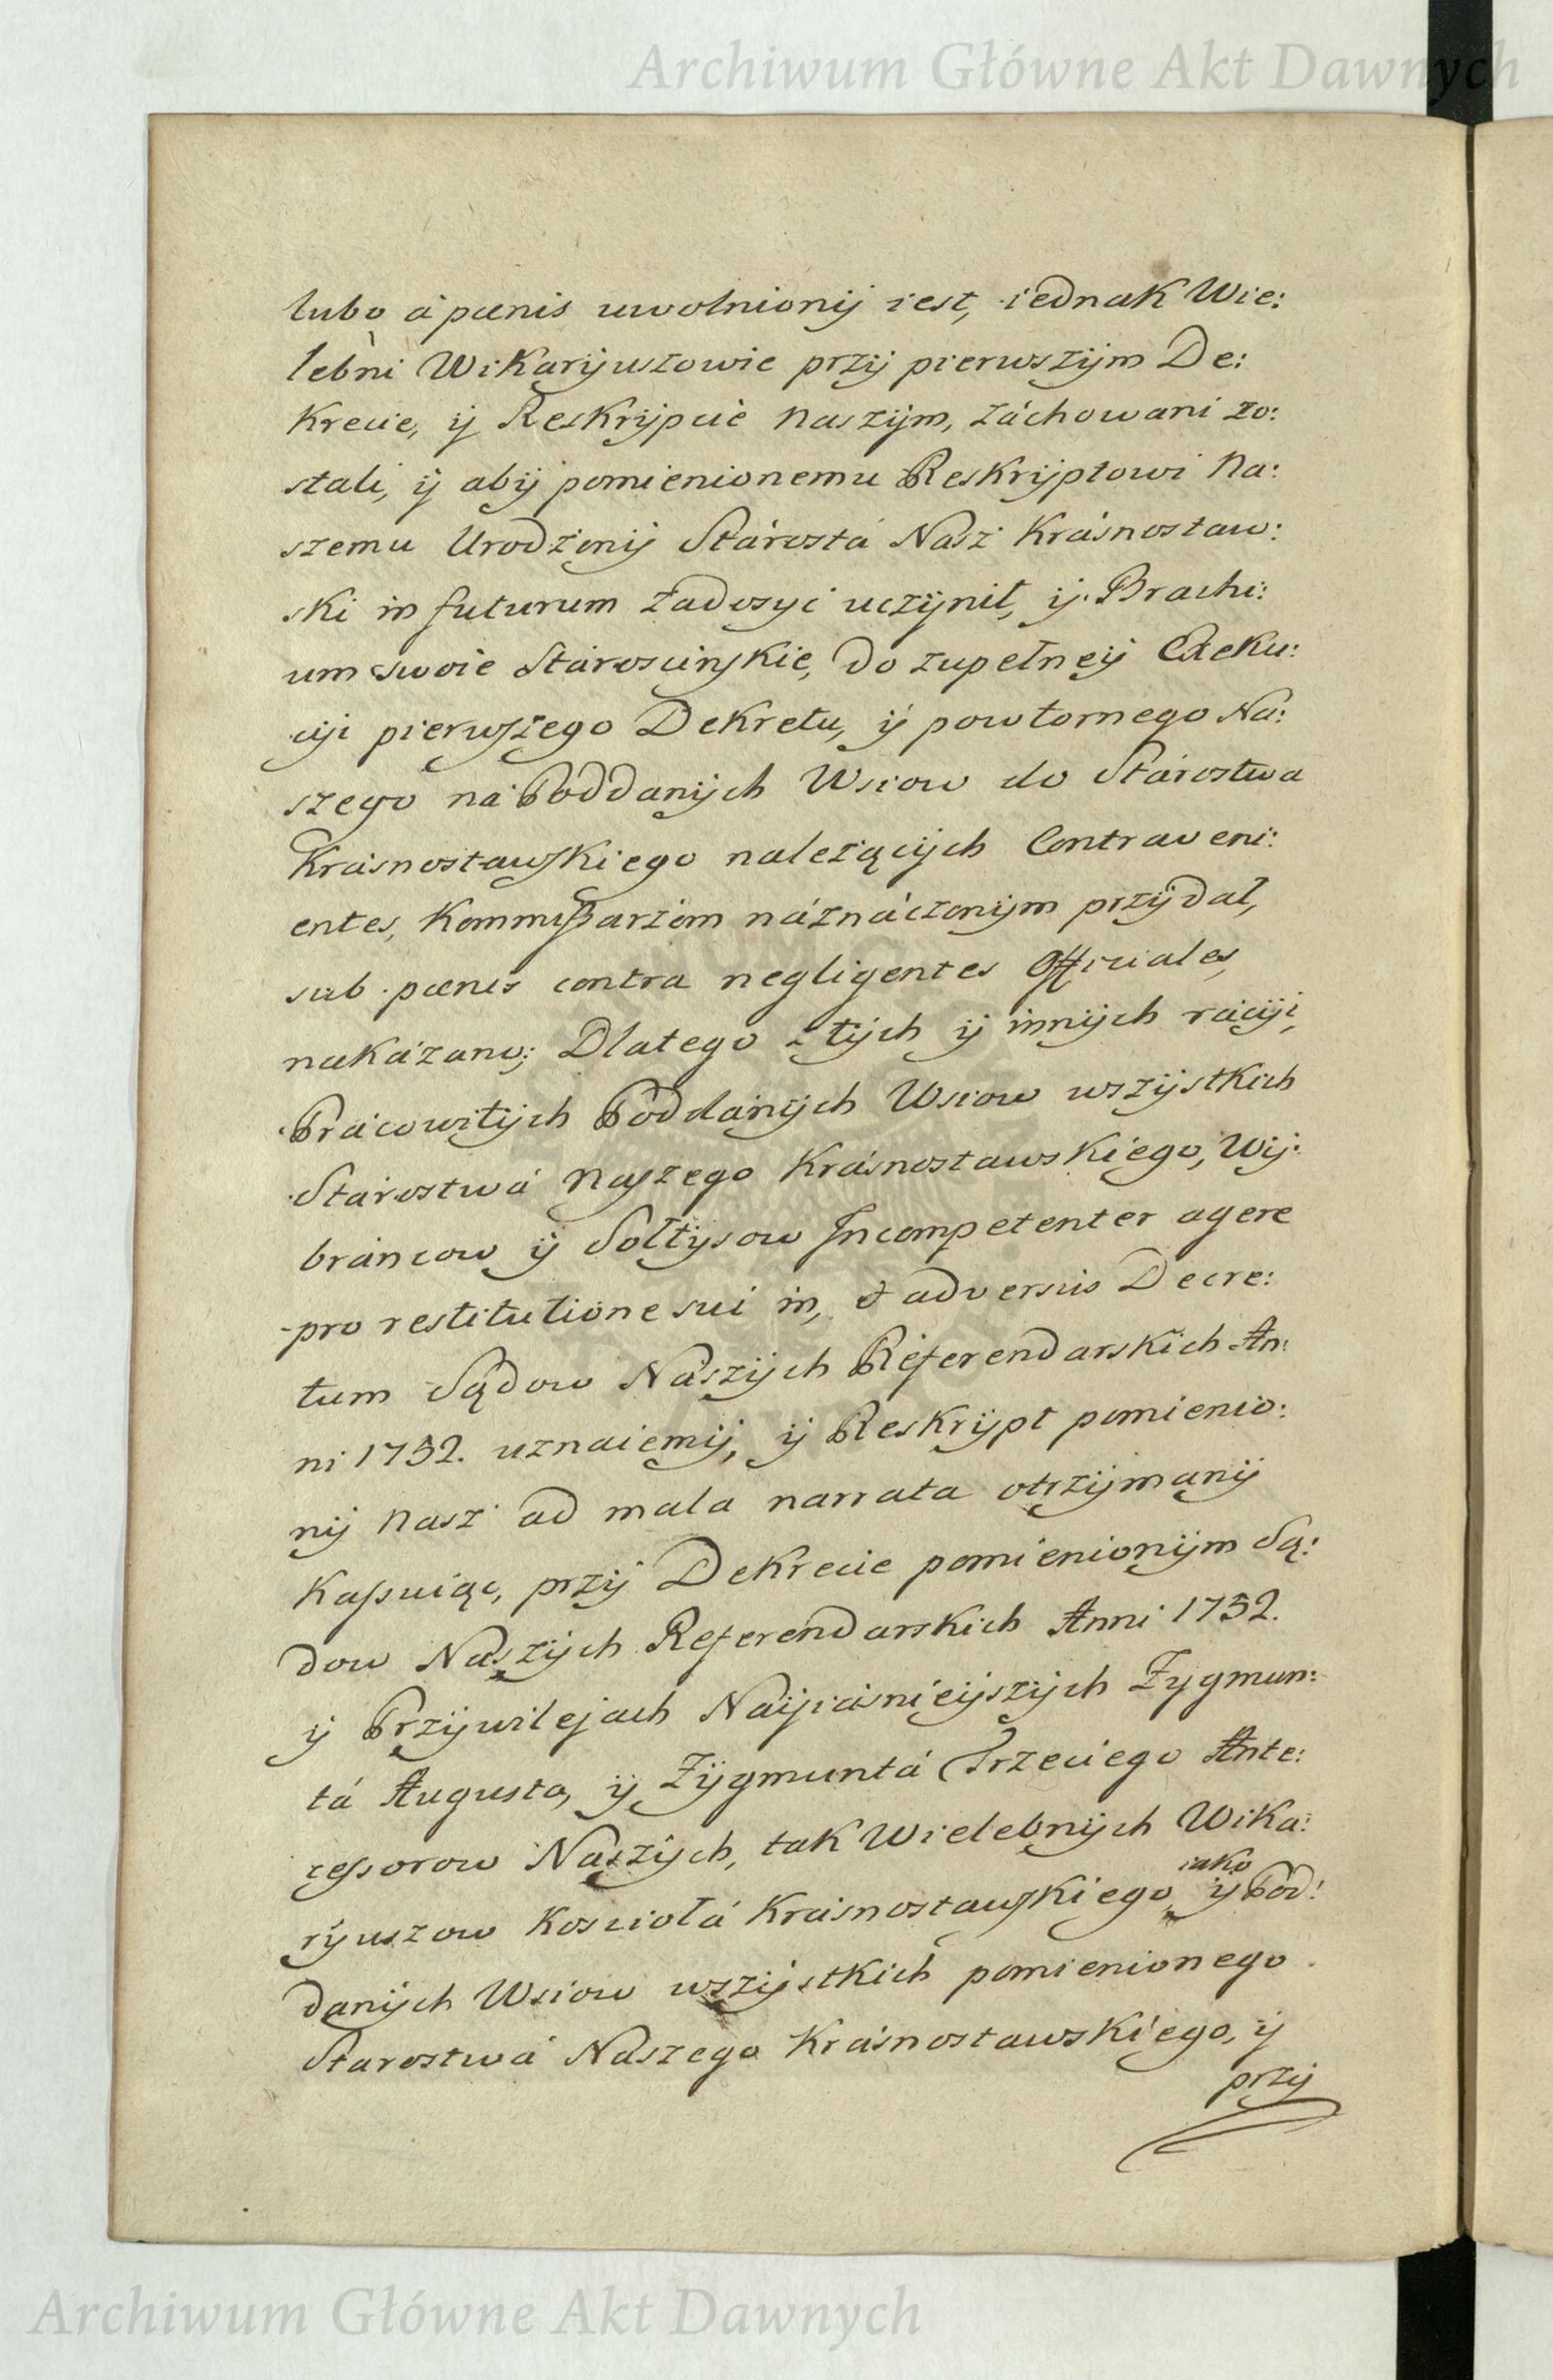 Archiwum Główne Akt Dawnych
lubo á pœnis uwolnionÿ iest, iednak Wie:
lebni WiKarÿuszowie przÿ pierwszÿm De:
Krecie, ÿ ResKrÿpcie Naszÿm, záchowani zo:
stali, ÿ abÿ pomienionemu ResKrÿptowi Na:
szemu Urodzonÿ Stárostá Nasz Krásnostaw:
ski in futurum zadosyć uczÿnił, ÿ Brachi:
um swoie Staroscinskie, do zupełneÿ ExeKu:
cÿi pierwszego DeKretu, ÿ powtornego Ná:
szego ná Poddanÿch Wsiow do Stárostwa
KrásnostawsKiego nalezącÿch Contraveni:
entes, Kommissarzom náznáczonÿm przÿdał,
sub pœnis contra negligentes Officiales,
nakázano; Dlatego z tÿch ÿ innÿch rácÿi,
Prácowitÿch Poddánÿch Wsiow wszÿstkich
Stárostwá Naszego KrásnostawsKiego, Wÿ:
bráncow ÿ Sołtÿsow Incompetenter agere
pro restitutione sui in, & adversus Decre:
tum Sądow Nászÿch Referendarskich An:
ni 1752. uznaiemÿ, ÿ ResKrÿpt pomienio:
nÿ Nasz ad mala narrata otrzÿmanÿ
Kassuiąc, przÿ DeKrecie pomienionÿm Są:
dow Nászÿch Referendarskich Anni 1752.
ÿ Przÿwilejach Náÿiásnieÿszÿch Zygmun:
tá Augusta, ÿ Zÿgmuntá Trzeciego Ante:
cessorow Nászÿch, tak Wielebnÿch WiKa:
rÿuszow Kosciołá KrásnostawsKiego iako ÿ Pod:
danÿch Wsiow wszÿstkich pomienionego
Starostwá Nászego KrásnostawsKiego, ÿ
przÿ
Archiwum Główne Akt Dawnych